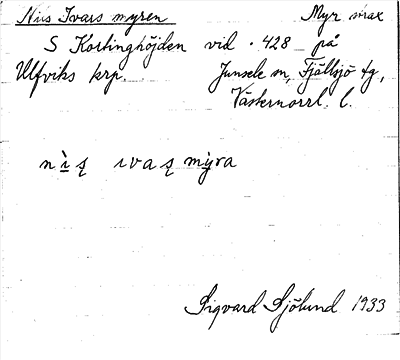 Nils Ivars myren Myr
S Kortinghöjden vid · 428 på
Ulfviks krp. Junsele sn, Fjällsjö tg,
Västernorrl. l.
nìs ivas myra
Sigvard Sjölund 1933